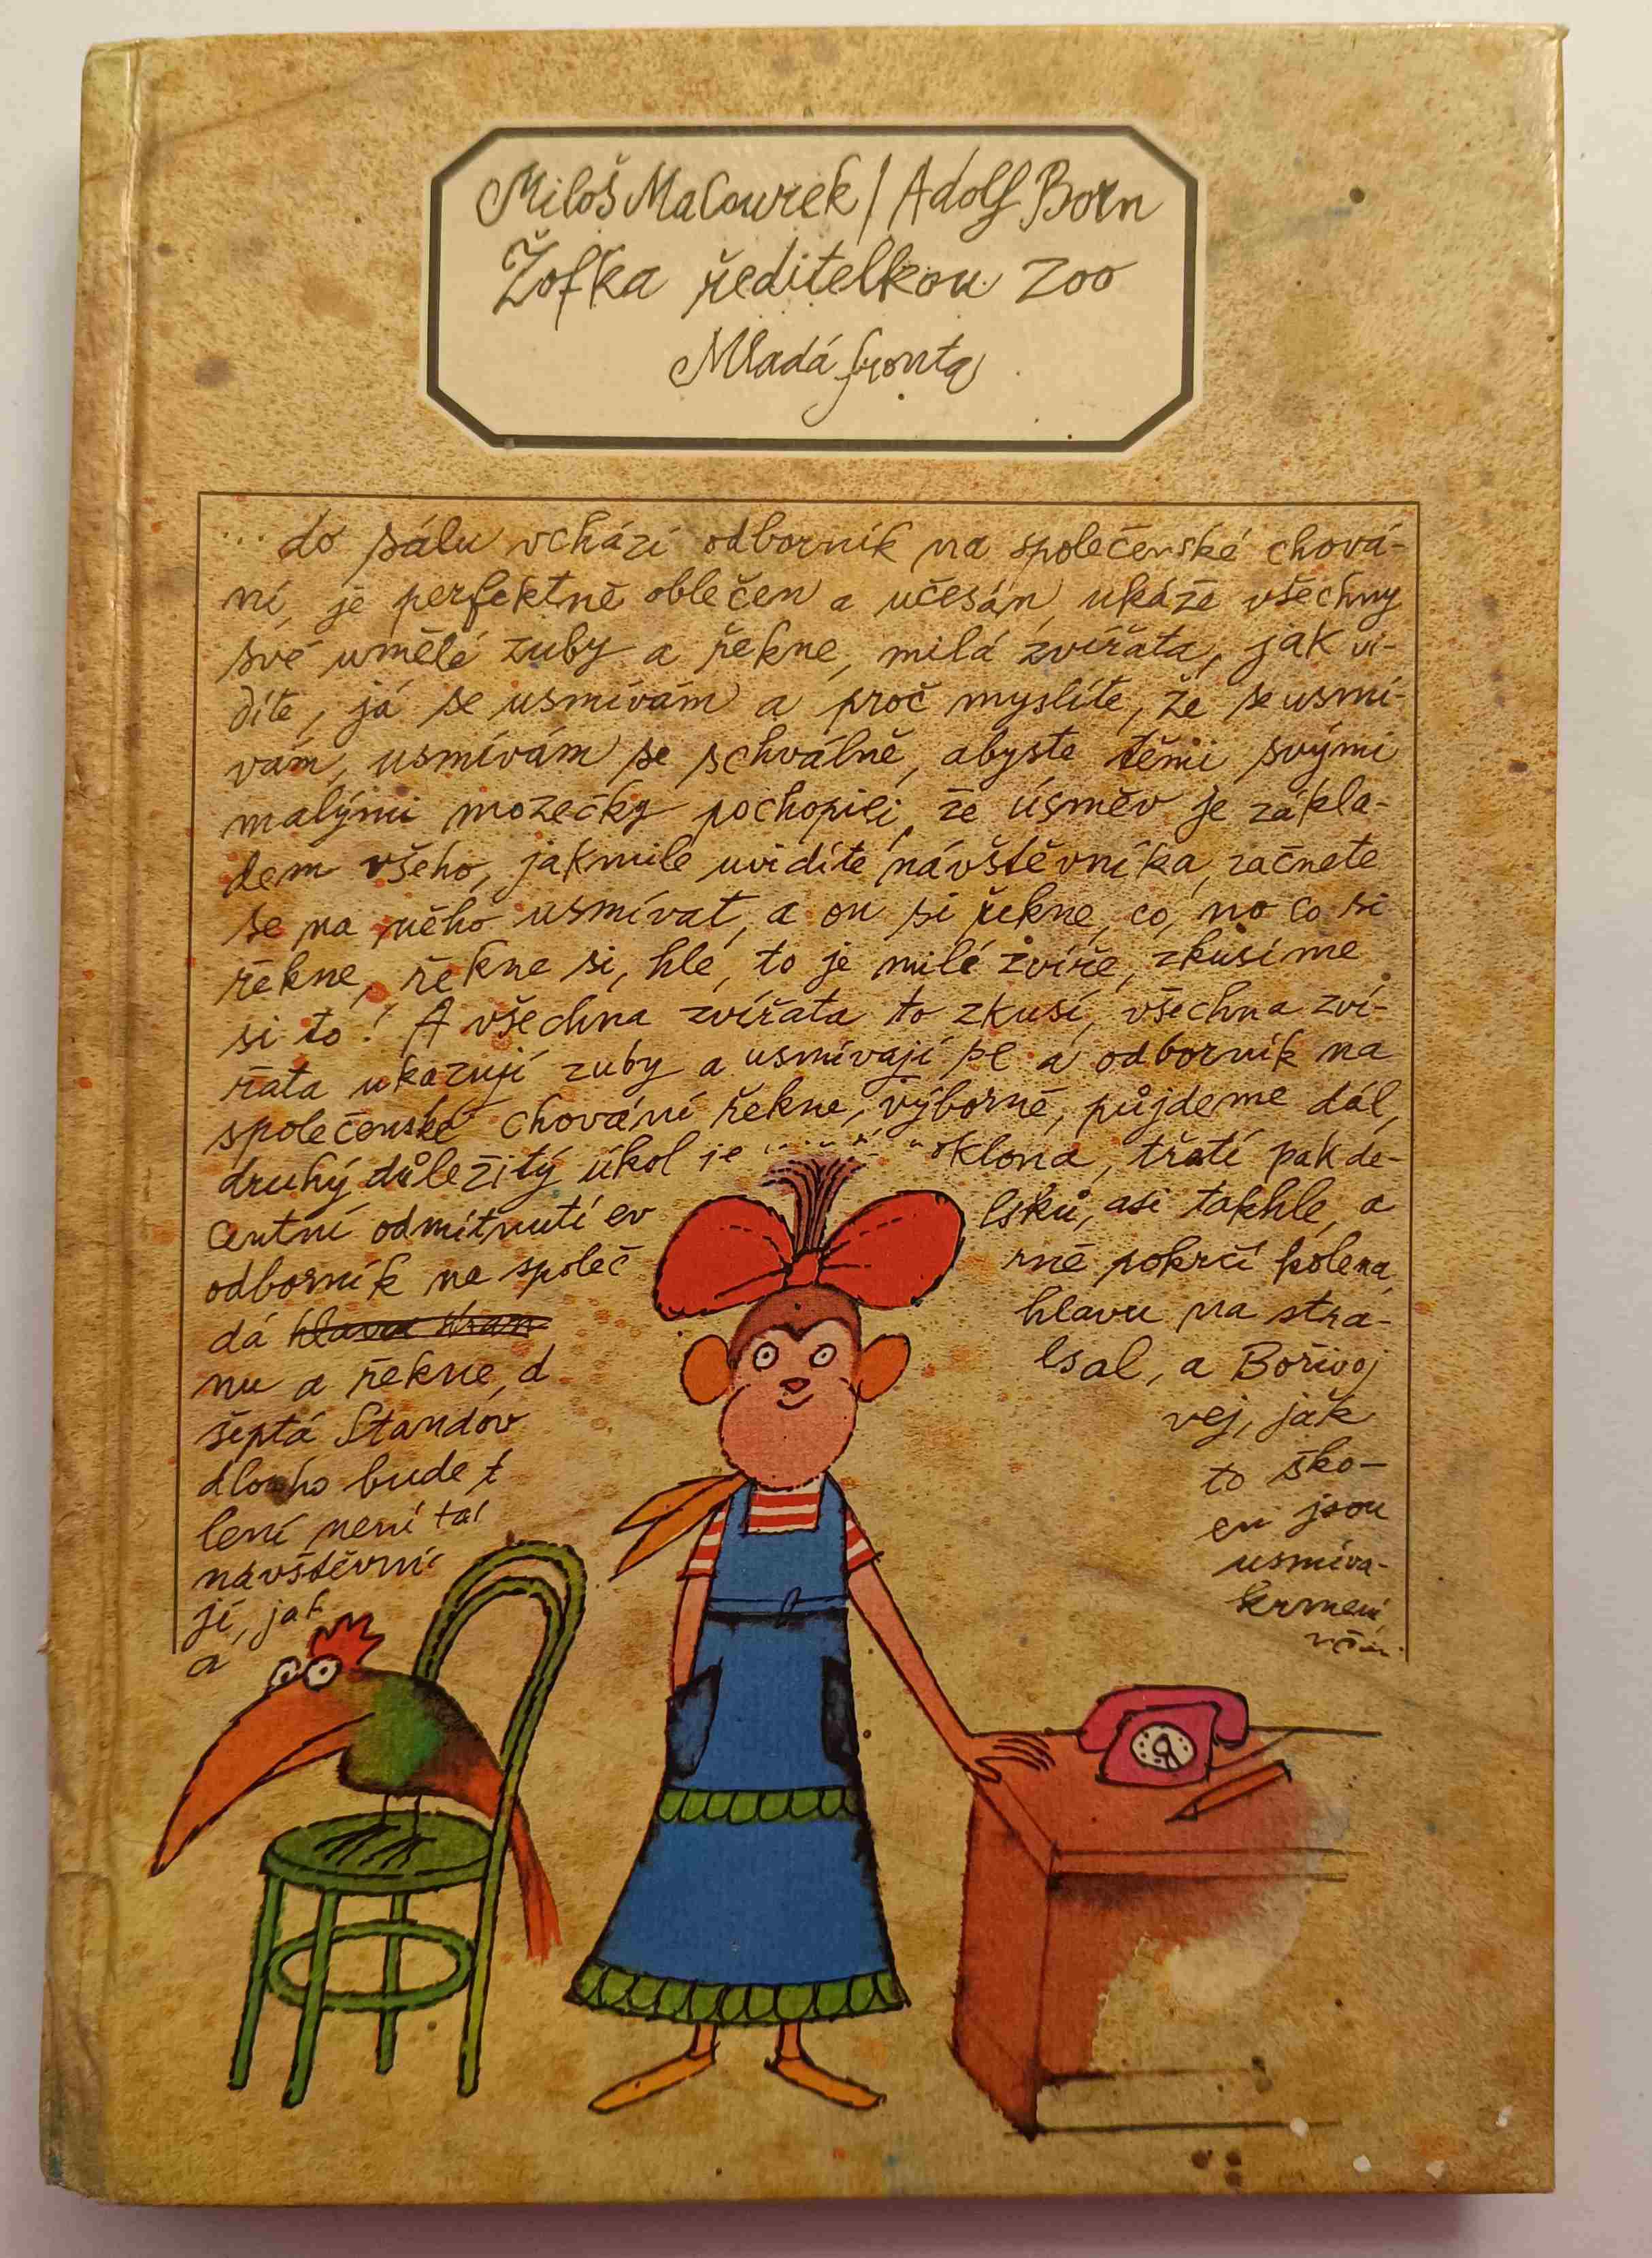 Miloš Macourek / Adolf Born
Žofka ředitelkou zoo
Mladá fronta
... do sálu vchází odborník na společenské chová-
ní, je perfektně oblečen a učesán, ukáže všechny
své umělé zuby a řekne, milá zvířata, jak vi-
díte, já se usmívám a proč myslíte, že se usmí-
vám, usmívám se schválně, abyste těmi svými
malými mozečky pochopili, že úsměv je zákla-
dem všeho, jakmile uvidíte návštěvníka, začnete
se na něho usmívat, a on si řekne, co, no co si
řekne, řekne si, hle, to je milé zvíře, zkusíme
si to! A všechna zvířata to zkusí, všechna zví-
řata ukazují zuby a usmívají se a odborník na
společenské chování řekne, výborně, půjdeme dál,
druhý důležitý úkol je oklona, třetí pak de-
centní odmítnutí ev lsků, asi takhle, a
odborník na společ rně pokrčí kolena,
dá hlavu na stra-
nu a řekne, d lsal, a Bořivoj
šeptá Standov vej, jak
dlouho bude t to ško-
lení není tak en jsou
návštěvní usmíva-
jí, jak krmení,
a